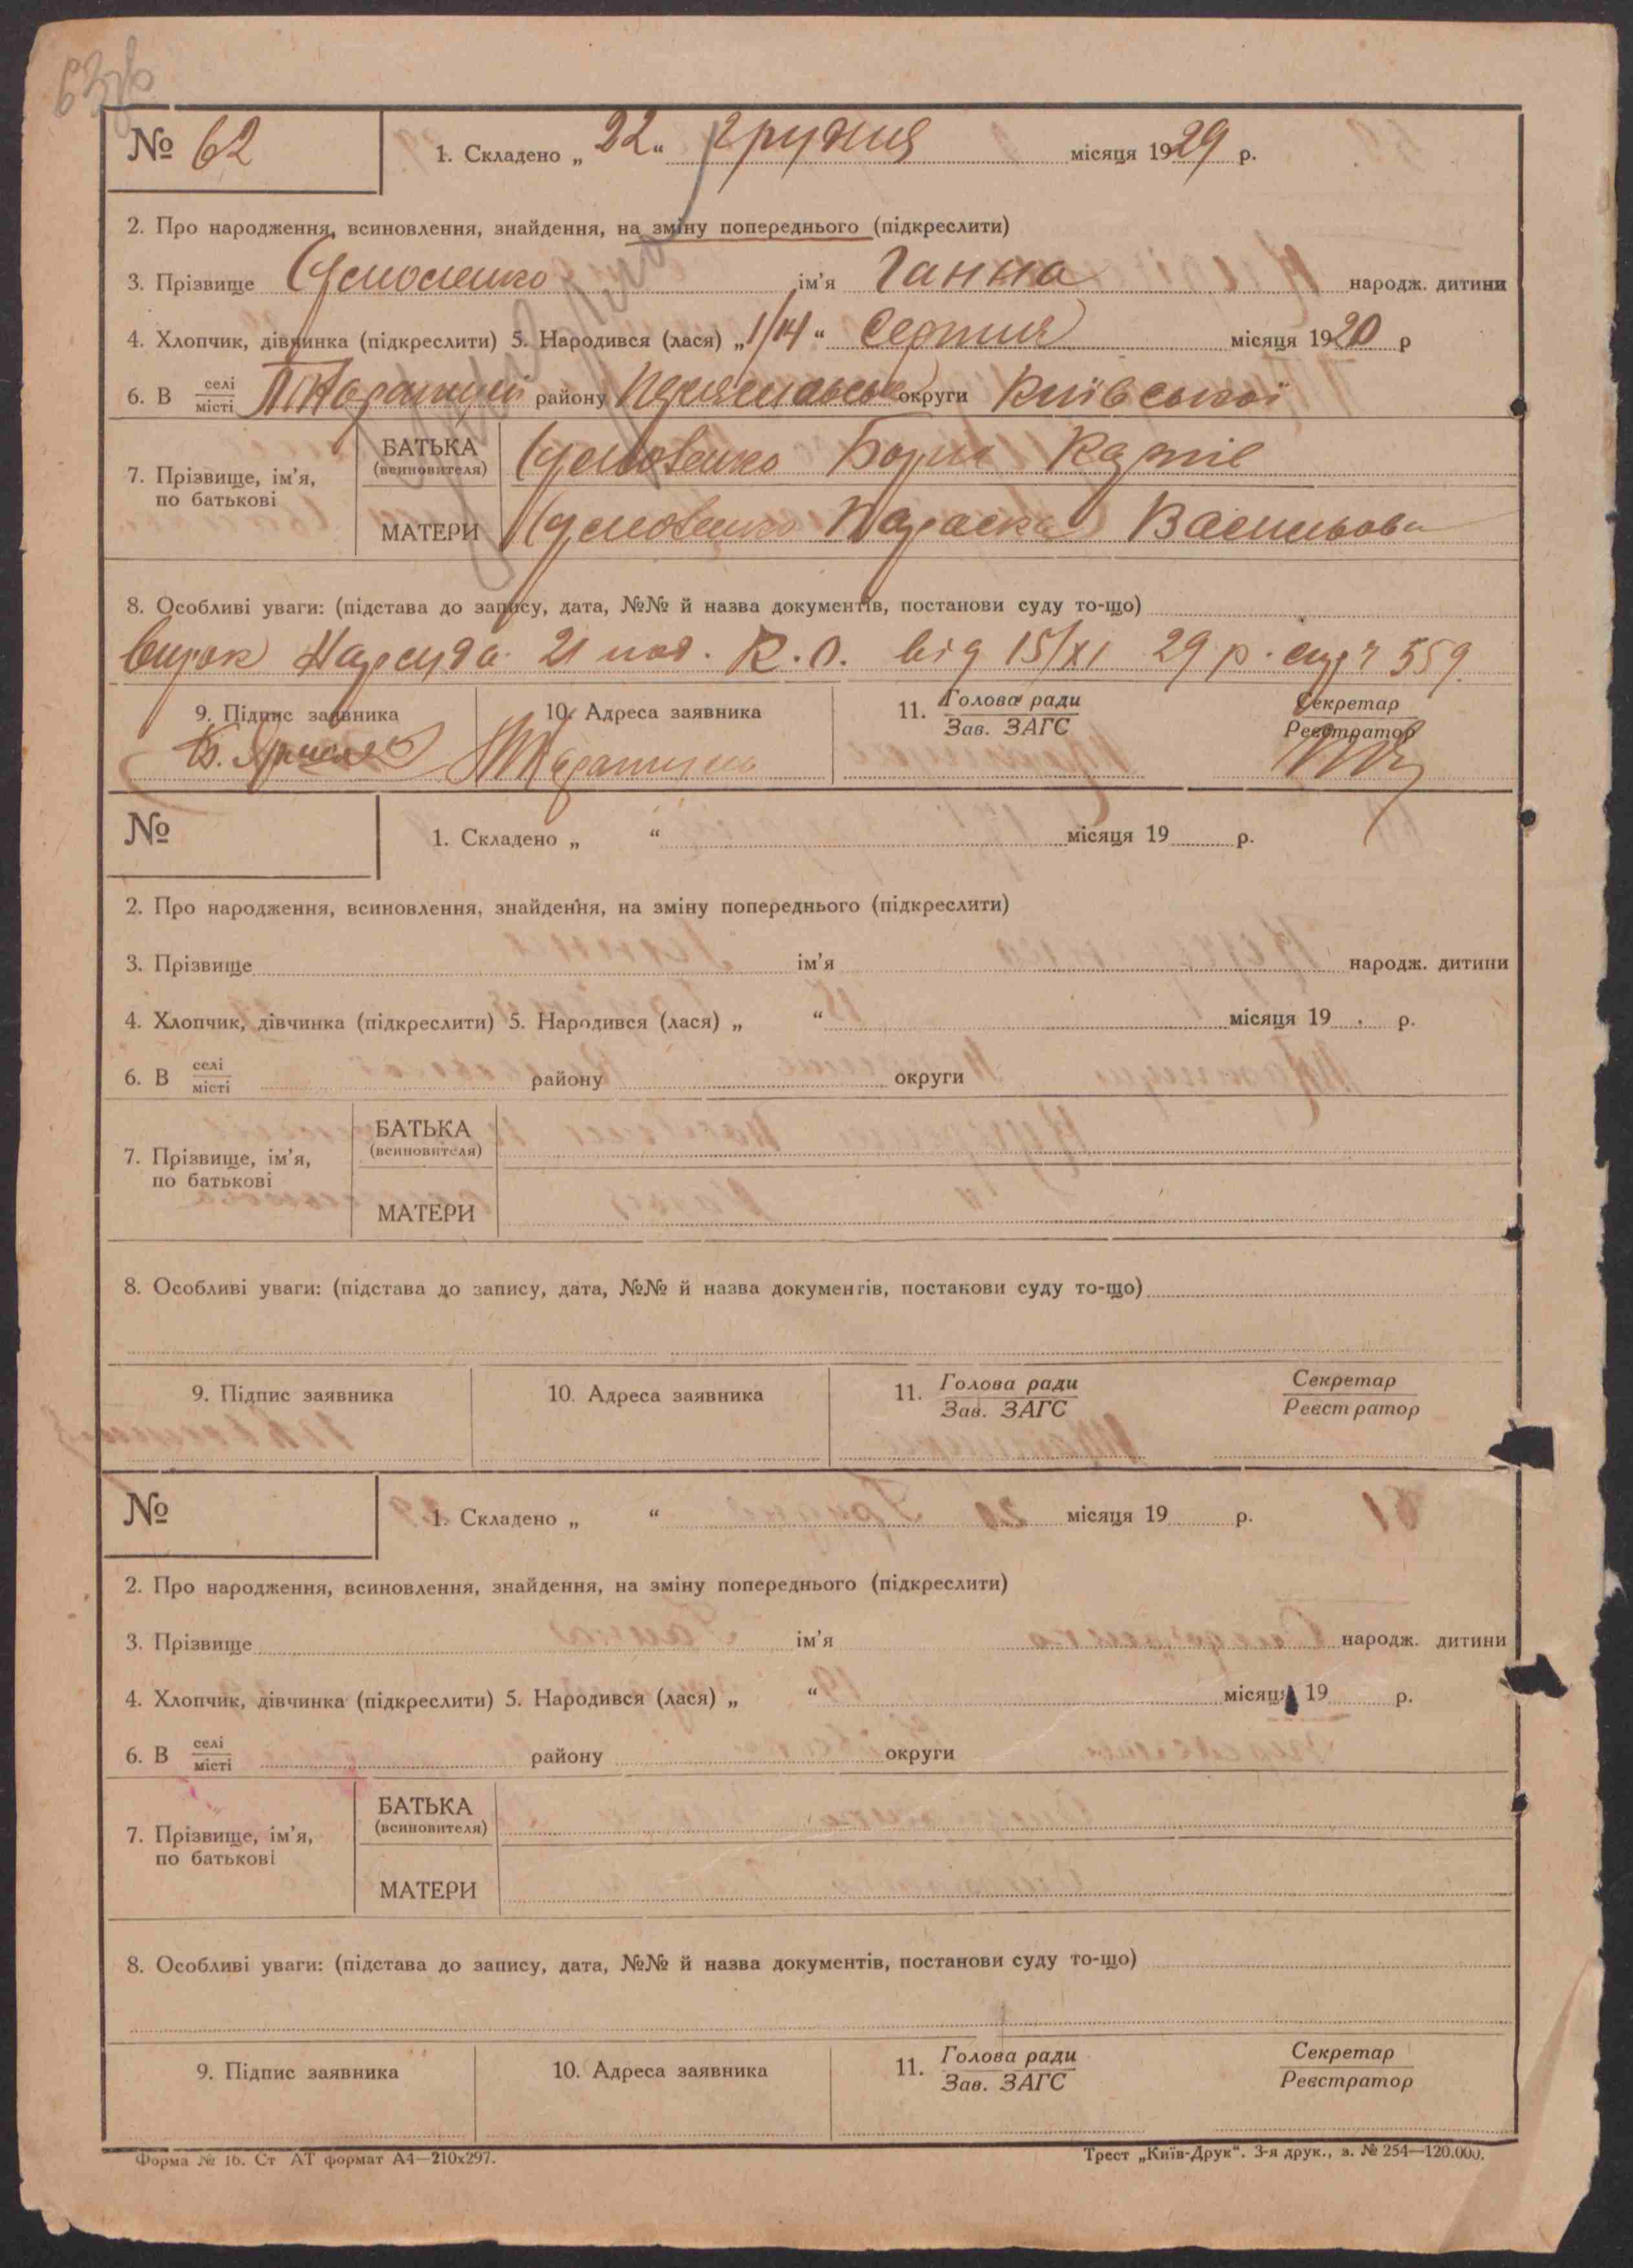 63зв
№ 62 1. Складено „22“ грудня місяця 1929 р.
2. Про народження, всиновлення, знайдення, на зміну попереднього (підкреслити)
3. Прізвище ім’я Ганна народж. дитини
4. Хлопчик, дівчинка (підкреслити) 5. Народився (лася) „1/14“ Серпня місяця 1920 р
6. В селі місті району округи Київської
7. Прізвище, ім’я, по батькові
БАТЬКА (всиновителя) Борис
МАТЕРИ Параска Васильова
8. Особливі уваги: (підстава до запису, дата, №№ й назва документів, постанови суду то-що)
вирок Нарсуда 21 від 15/XI 29 р. 559
9. Підпис заявника 10. Адреса заявника 11. Голова ради Зав. ЗАГС Секретар Реєстратор
№ 1. Складено „ “ місяця 19 р.
2. Про народження, всиновлення, знайдення, на зміну попереднього (підкреслити)
3. Прізвище ім’я народж. дитини
4. Хлопчик, дівчинка (підкреслити) 5. Народився (лася) „ “ місяця 19 р.
6. В селі місті району округи
7. Прізвище, ім’я, по батькові
БАТЬКА (всиновителя)
МАТЕРИ
8. Особливі уваги: (підстава до запису, дата, №№ й назва документів, постанови суду то-що)
9. Підпис заявника 10. Адреса заявника 11. Голова ради Зав. ЗАГС Секретар Реєстратор
№ 1. Складено „ “ місяця 19 р.
2. Про народження, всиновлення, знайдення, на зміну попереднього (підкреслити)
3. Прізвище ім’я народж. дитини
4. Хлопчик, дівчинка (підкреслити) 5. Народився (лася) „ “ місяця 19 р.
6. В селі місті району округи
7. Прізвище, ім’я, по батькові
БАТЬКА (всиновителя)
МАТЕРИ
8. Особливі уваги: (підстава до запису, дата, №№ й назва документів, постанови суду то-що)
9. Підпис заявника 10. Адреса заявника 11. Голова ради Зав. ЗАГС Секретар Реєстратор
Форма № 16. Ст АТ формат А4—210x297. Трест „Київ-Друк“. 3-я друк., з. № 254—120.000.